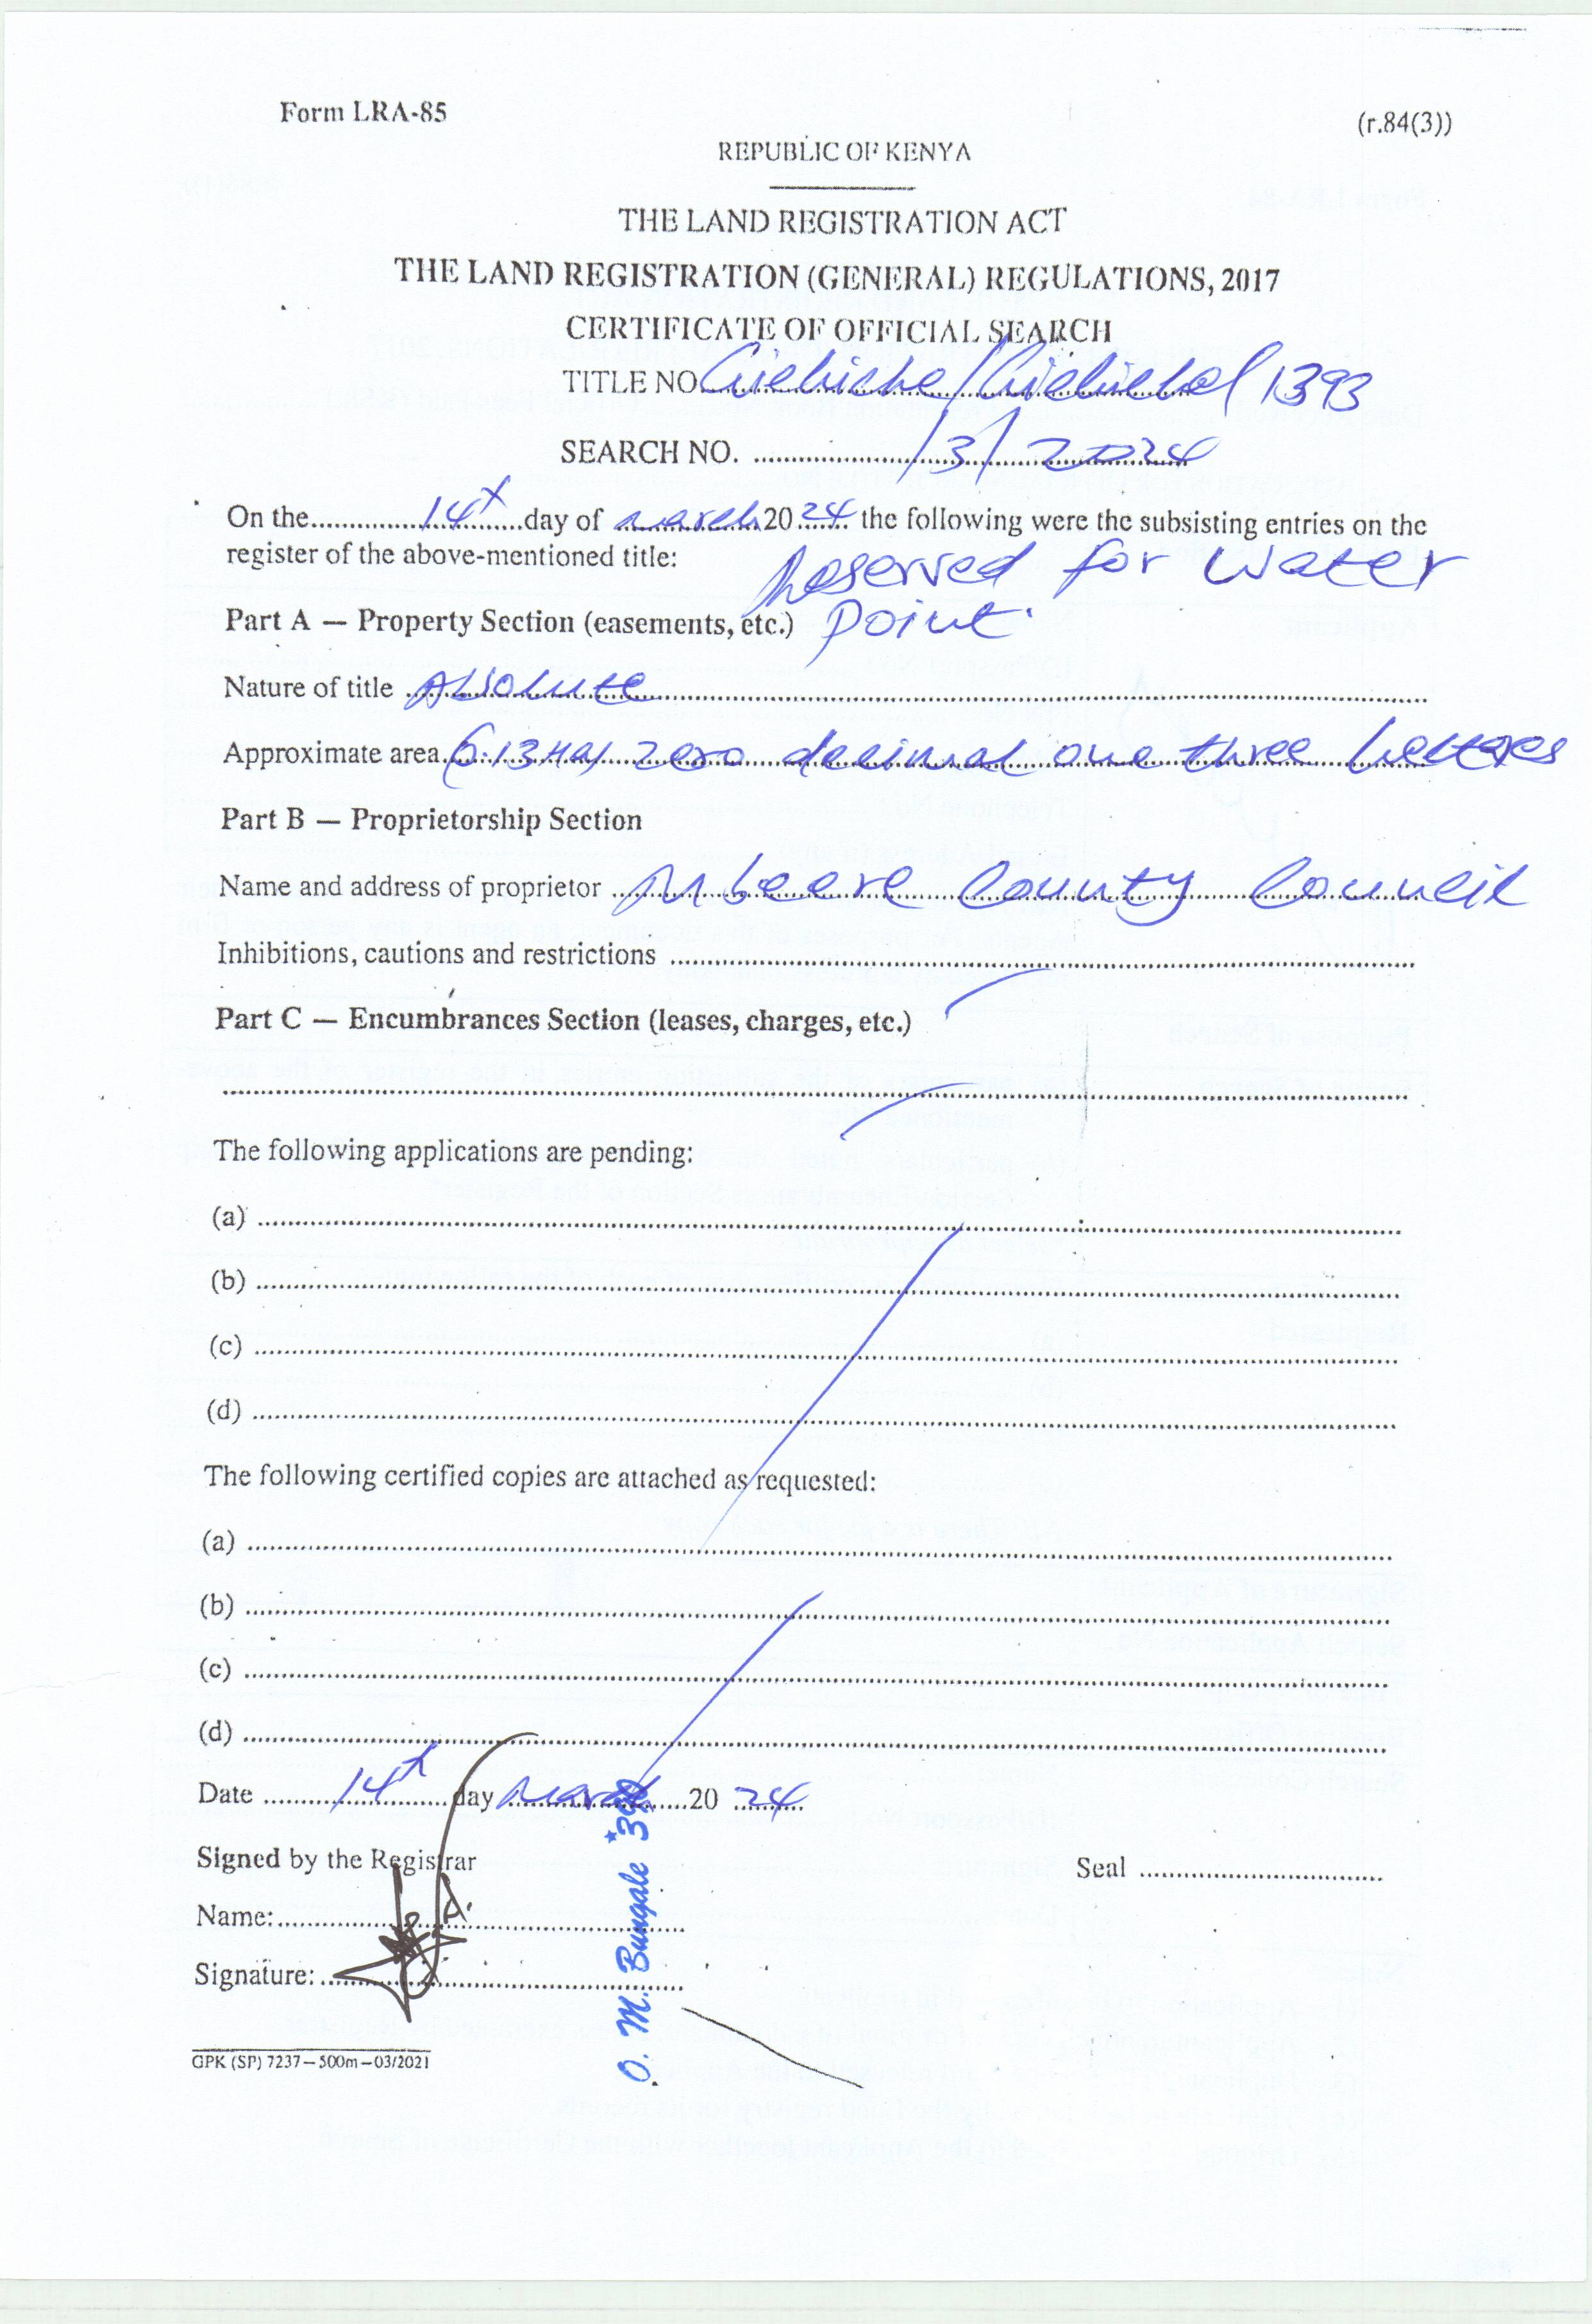 Form LRA-85
(r.84(3))
REPUBLIC OF KENYA
THE LAND REGISTRATION ACT
THE LAND REGISTRATION (GENERAL) REGULATIONS, 2017
CERTIFICATE OF OFFICIAL SEARCH
TITLE NO. 1393
SEARCH NO. /3/2024
On the 14th day of march 2024 the following were the subsisting entries on the
register of the above-mentioned title:
Reserved for water
Part A — Property Section (easements, etc.) point.
Nature of title Absolute
Approximate area 0.13 Ha zero decimal one three hectares
Part B — Proprietorship Section
Name and address of proprietor Mbeere County Council
Inhibitions, cautions and restrictions
Part C — Encumbrances Section (leases, charges, etc.)
The following applications are pending:
(a)
(b)
(c)
(d)
The following certified copies are attached as requested:
(a)
(b)
(c)
(d)
Date 14th day March 2024
Signed by the Registrar
Seal
Name:
Signature:
O. M. Bungale *390
GPK (SP) 7237—500m—03/2021